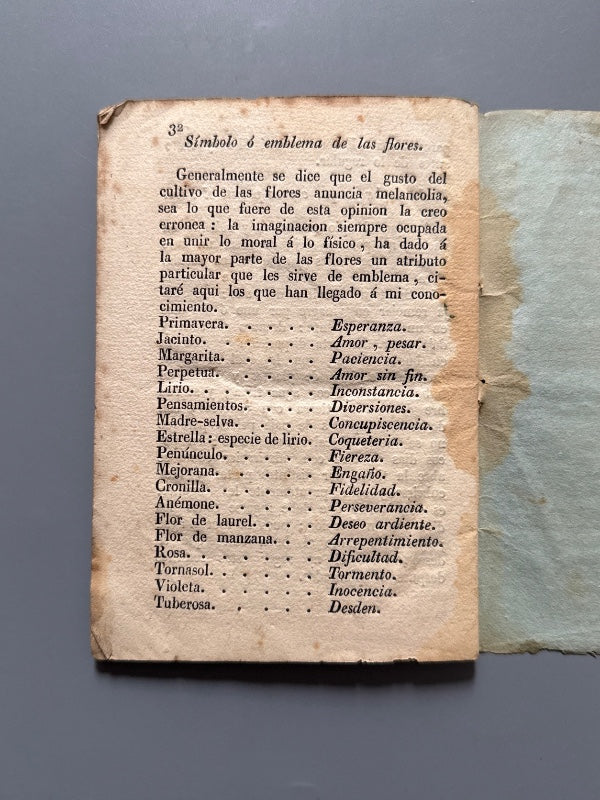 32
Símbolo ó emblema de las flores.
Generalmente se dice que el gusto del
cultivo de las flores anuncia melancolia,
sea lo que fuere de esta opinion la creo
erronea : la imaginacion siempre ocupada
en unir lo moral á lo físico, ha dado á
la mayor parte de las flores un atributo
particular que les sirve de emblema, ci-
taré aqui los que han llegado á mi cono-
cimiento.
Primavera. . . . . . Esperanza.
Jacinto. . . . . . Amor, pesar.
Margarita. . . . . . Paciencia.
Perpetua. . . . . . Amor sin fin.
Lirio. . . . . . . Inconstancia.
Pensamientos. . . . . Diversiones.
Madre-selva. . . . . Concupiscencia.
Estrella: especie de lirio. Coqueteria.
Penúnculo. . . . . Fiereza.
Mejorana. . . . . . Engaño.
Cronilla. . . . . . Fidelidad.
Anémone. . . . . . Perseverancia.
Flor de laurel. . . . Deseo ardiente.
Flor de manzana. . . Arrepentimiento.
Rosa. . . . . . . Dificultad.
Tornasol. . . . . . Tormento.
Violeta. . . . . . Inocencia.
Tuberosa. . . . . . Desden.